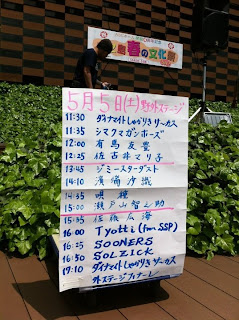 春の文化祭
5月5日(土)野外ステージ
11:30 ダイナマイトしゃかりきサーカス
11:35 シマクマガンホーズ
12:00 有馬友豊
12:25 佐古井マリ子
13:45 ジミースターダスト
14:10
14:35
15:00 瀬戸山智之助
15:35 佐藤広海
16:00 Tyotti (from SSP)
16:25 SOONERS
16:50 SOLZICK
17:10 ダイナマイトしゃかりきサーカス
外ステージフィナーレ